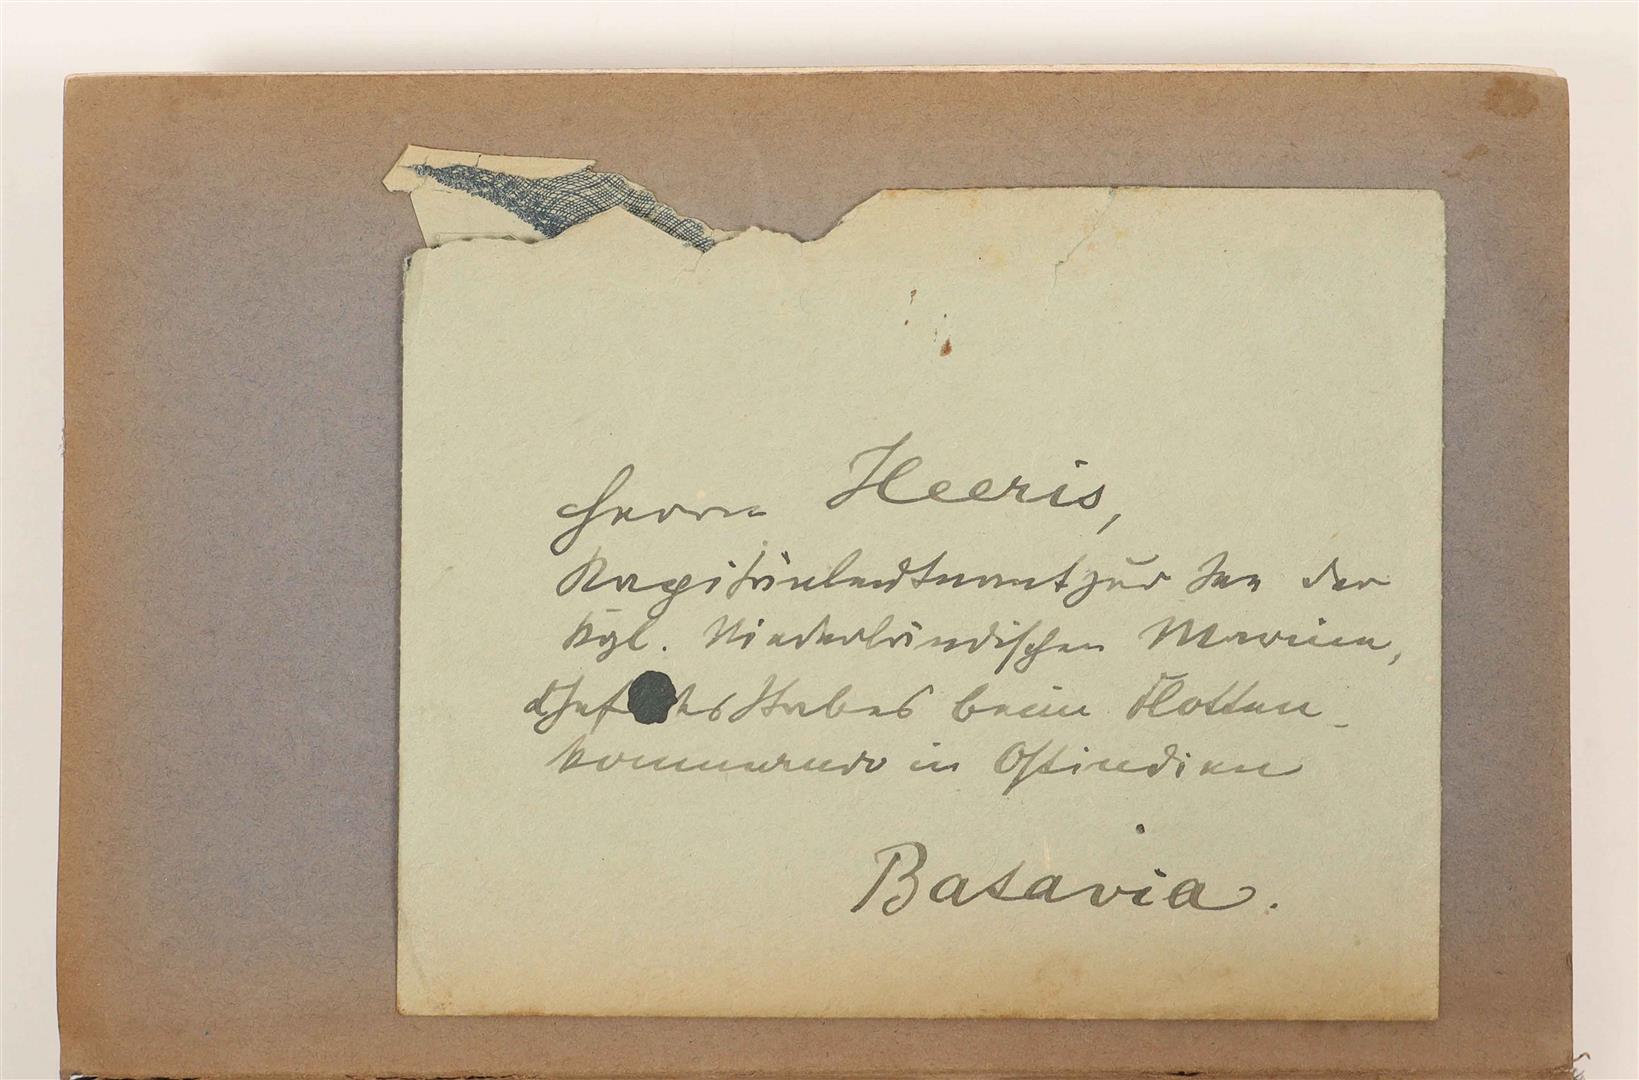 Herrn Heeris,
Kapitänleutnant zur See der
Kgl. Niederländischen Marine,
Chef des Stabes beim Flotten-
kommando in Ostindien
Batavia.